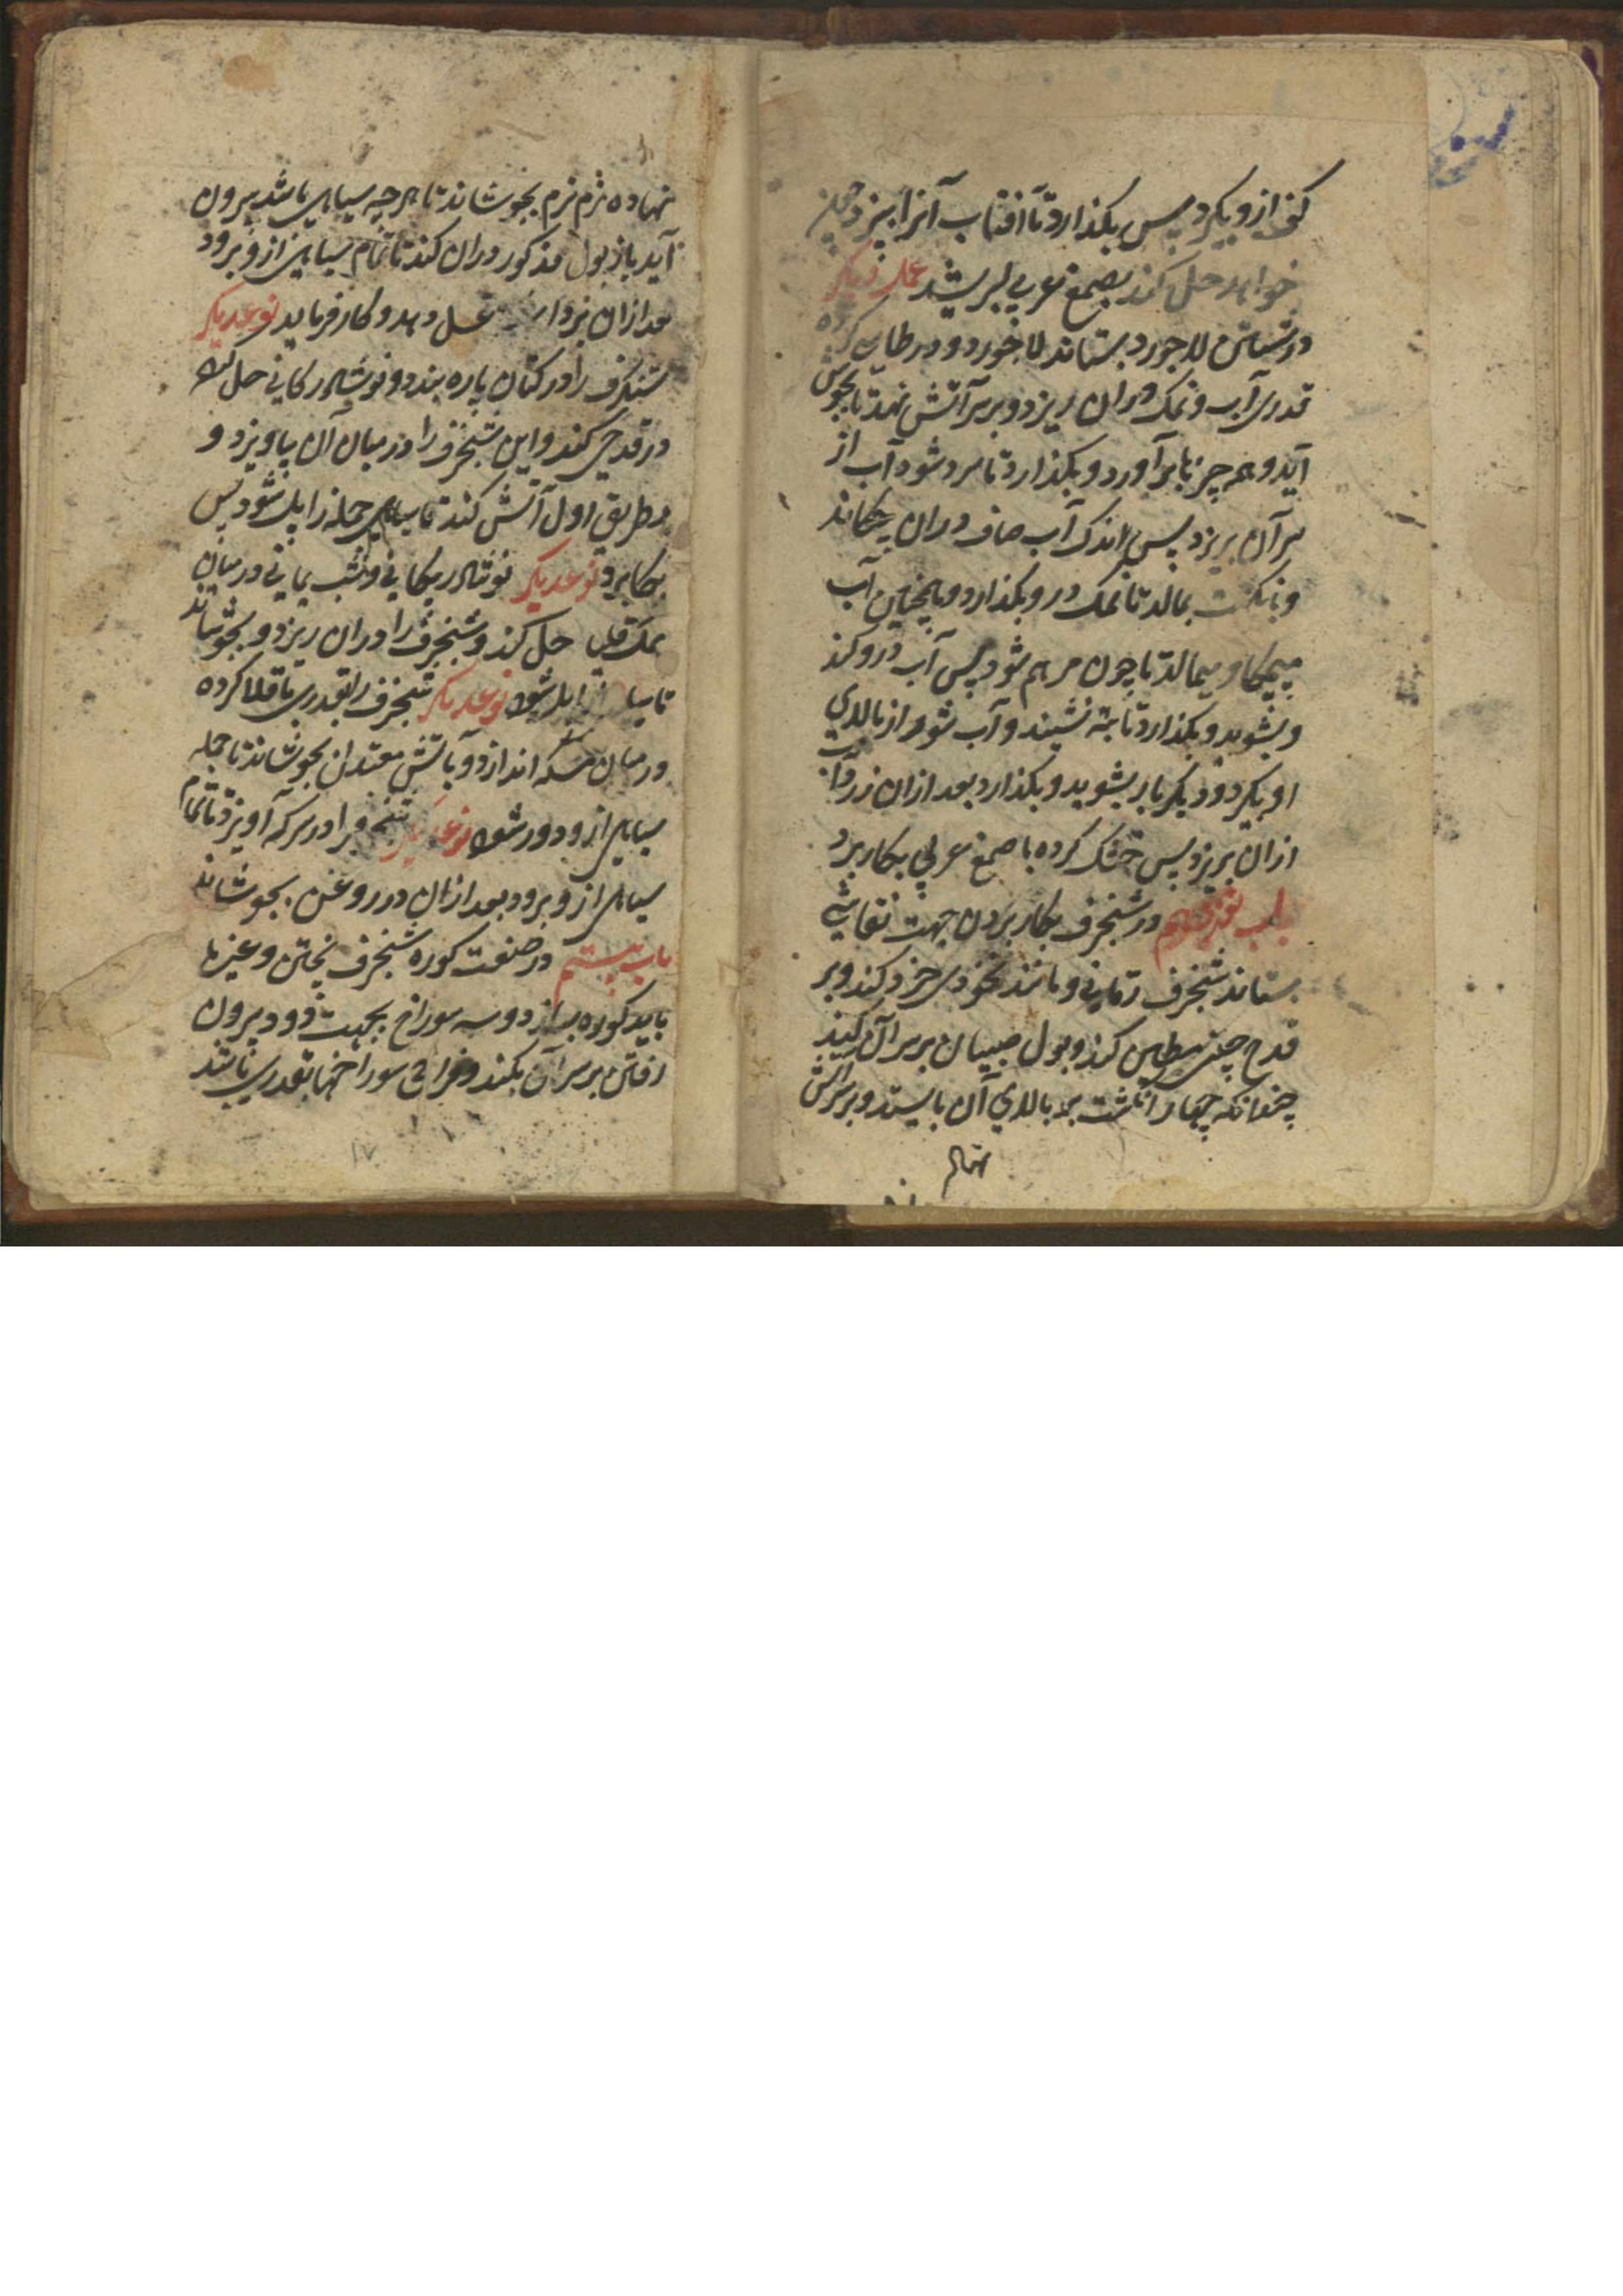 کف ازو بکیرد پس بکذارد تا آفتاب آنرا بپزد چون
خواهد حل کند بصمغ عربی بسریشد عمل دیکر
در شستن لاجورد بستاند لاجورد و در طاس کرده
قدری آب و نمک دران ریزد و بر سر آتش نهد تا بجوش
آید و همه چیزها برآورد و بکذارد تا سرد شود آب از
سر آن بریزد پس اندک آب صاف دران چکاند
و بانکشت بمالد تا نمک درو بکذارد و همچنان آب
میچکاند و میمالد تا چون مرهم شود پس آب درو کند
و بشوید و بکذارد تا بته نشیند و آب شور از بالای
او بکیرد و دیکر بار بشوید و بکذارد بعد ازان زرداب
ازان بریزد پس خشک کرده با صمغ عربی بکار برد
باب نوزدهم در شنجرف بکار بردن جهت نقاشی
بستاند شنجرف رمانی و مانند نخودی خرد کند و بر
قدح چینی کند و بول صبیان بر سر آن کند
چنانکه چهار انکشت بر بالای آن بایستد و بر سر آتش
نهاده
نهاده نرم نرم بجوشاند تا هر چه سیاهی باشد بیرون
آید باز بول مذکور دران کند تا تمام سیاهی ازو برود
بعد ازان بردارد غسل دهد و کار فرماید نوعدیکر
شنکرف را در کتان پاره بندد و نوشادر کانی حل کرده
در قدحی کند و این شنجرف را در میان آن بیاویزد و
بطریق اول آتش کند تا سیاهی جمله زایل شود پس
بکار برد نوعدیکر نوشادر پیکانی و شب یمانی در میان
نمک حل کند و شنجرف را دران ریزد و بجوشاند
تا سیاهی زایل شود نوعدیکر شنجرف را بقدری باقلا کرده
در میان مسکه اندازد و بآتش معتدل بجوشاند تا جمله
سیاهی ازو دور شود نوعدیکر شنجرف را در سرکه آویزد تا تمام
سیاهی ازو برود بعد ازان در روغن بجوشاند
باب بیستم در صنعت کوره شنجرف پختن و غیرها
باید کوره بسازد و سه سوراخ بجهت دود بیرون
رفتن بر سر آن بکند و فراخی سوراخها بقدری باشد
۱۷